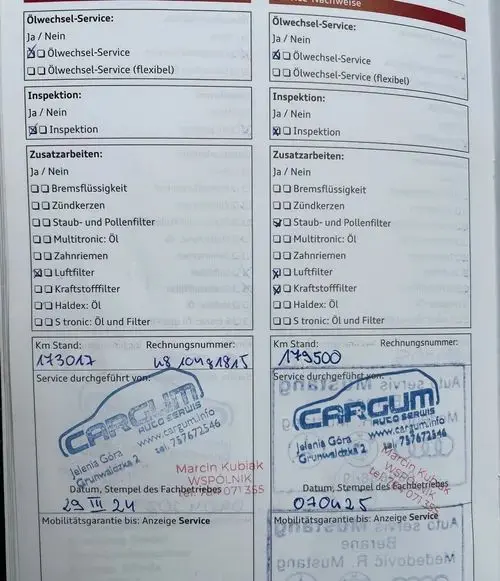 Ölwechsel-Service:
Ja / Nein
Ölwechsel-Service
Ölwechsel-Service (flexibel)
Inspektion:
Ja / Nein
Inspektion
Zusatzarbeiten:
Ja / Nein
Bremsflüssigkeit
Zündkerzen
Staub- und Pollenfilter
Multitronic: Öl
Zahnriemen
Luftfilter
Kraftstofffilter
Haldex: Öl
S tronic: Öl und Filter
Km Stand: Rechnungsnummer:
173017
Service durchgeführt von:
CARGUM
AUTO SERWIS
www.cargum.info
Jelenia Góra
Grunwaldzka 2 tel. 757672546
Marcin Kubiak
WSPÓLNIK
071 355
Datum, Stempel des Fachbetriebes
29 III 24
Mobilitätsgarantie bis: Anzeige Service
Nachweise
Ölwechsel-Service:
Ja / Nein
Ölwechsel-Service
Ölwechsel-Service (flexibel)
Inspektion:
Ja / Nein
Inspektion
Zusatzarbeiten:
Ja / Nein
Bremsflüssigkeit
Zündkerzen
Staub- und Pollenfilter
Multitronic: Öl
Zahnriemen
Luftfilter
Kraftstofffilter
Haldex: Öl
S tronic: Öl und Filter
Km Stand: Rechnungsnummer:
179500
Service durchgeführt von:
CARGUM
AUTO SERWIS
www.cargum.info
Jelenia Góra
Grunwaldzka 2 tel. 757672546
Marcin Kubiak
WSPÓLNIK
071 355
Datum, Stempel des Fachbetriebes
070425
Mobilitätsgarantie bis: Anzeige Service